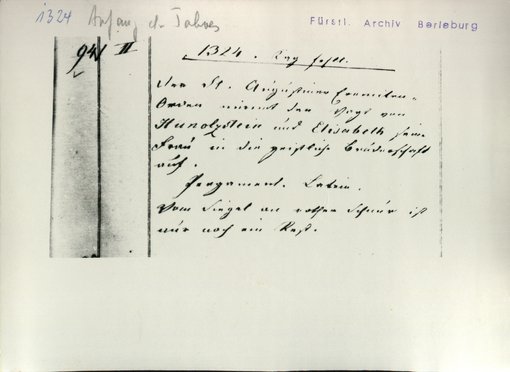 1324 Anfang d. Jahres
Fürstl. Archiv Berleburg
94 II
1324. Tag fehlt.
Der St. Augustiner Eremiten-
Orden nimmt den Vogt von
Hunolstein und Elisabeth seine
Frau in die geistliche Bruderschaft
auf.
Pergament. Latein.
Vom Siegel an rother Schnur ist
nur noch ein Rest.